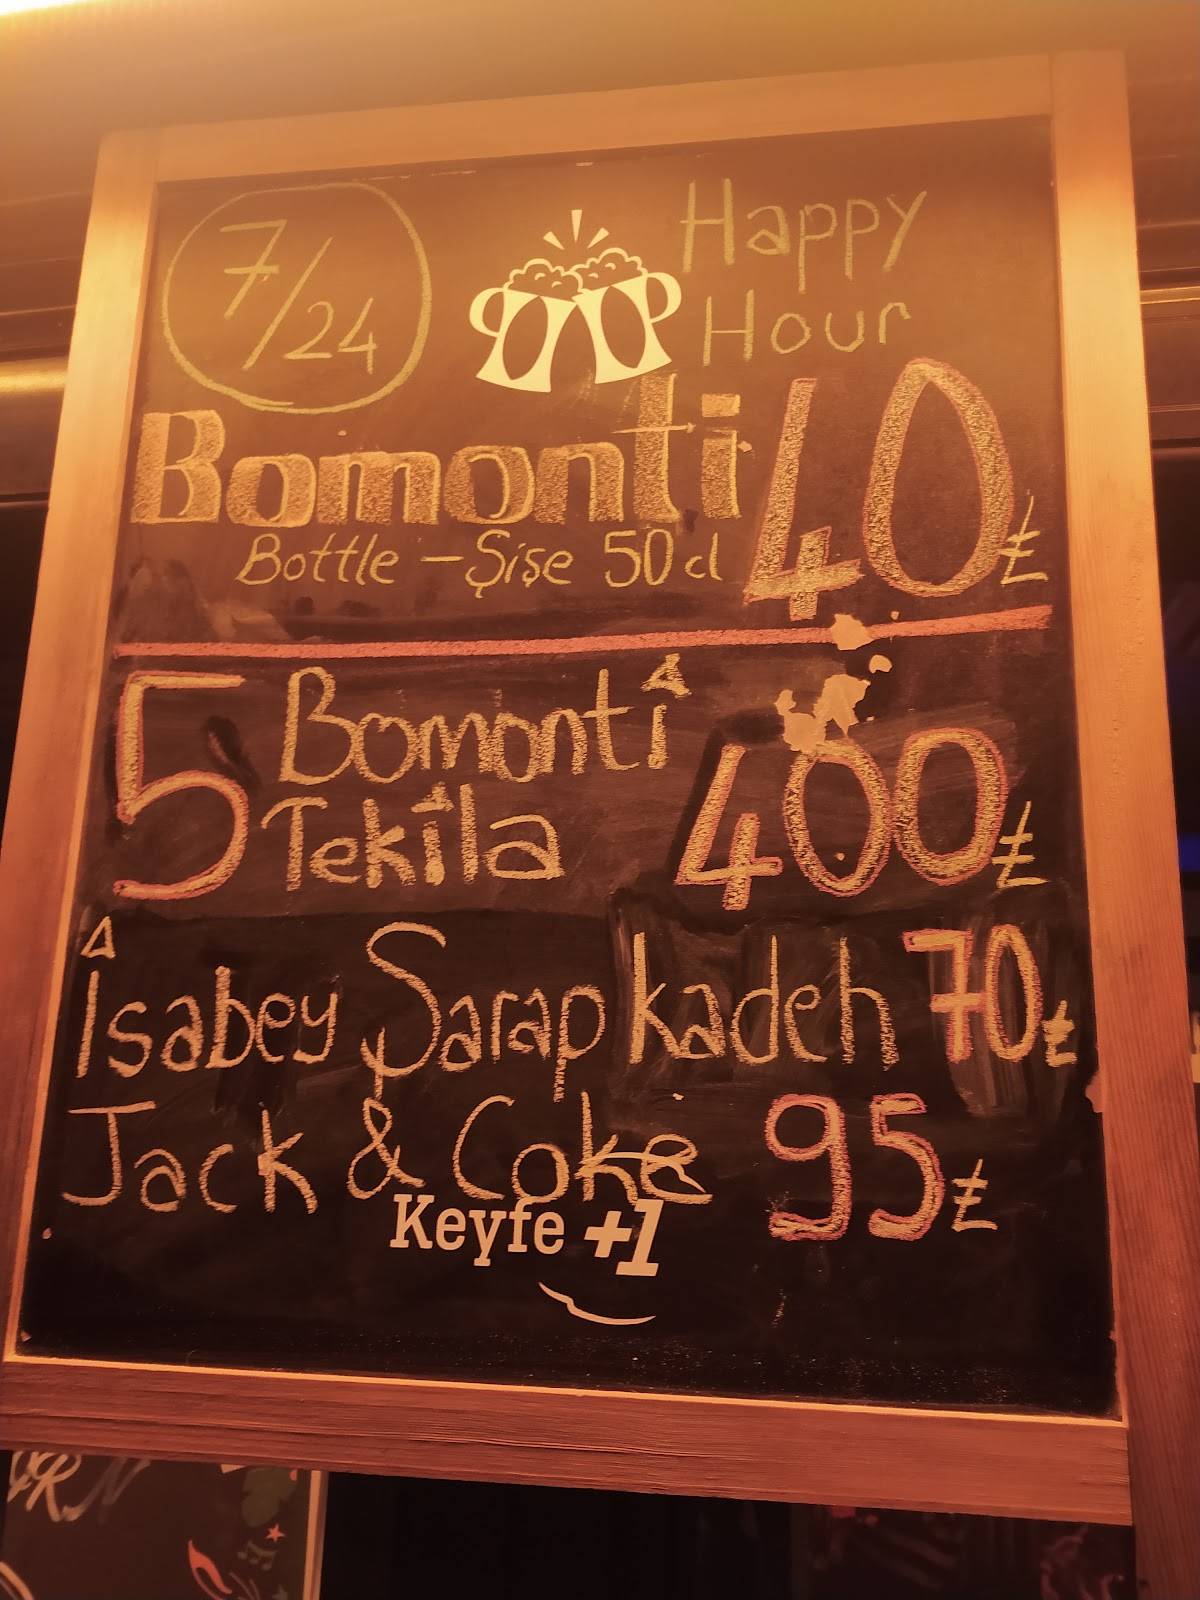 7/24
Happy
Hour
Bomonti 40₺
Bottle – Şişe 50 cl
5 Bomonti
Tekila 400₺
İsabey Şarap kadeh 70₺
Jack & Coke 95₺
Keyfe +1